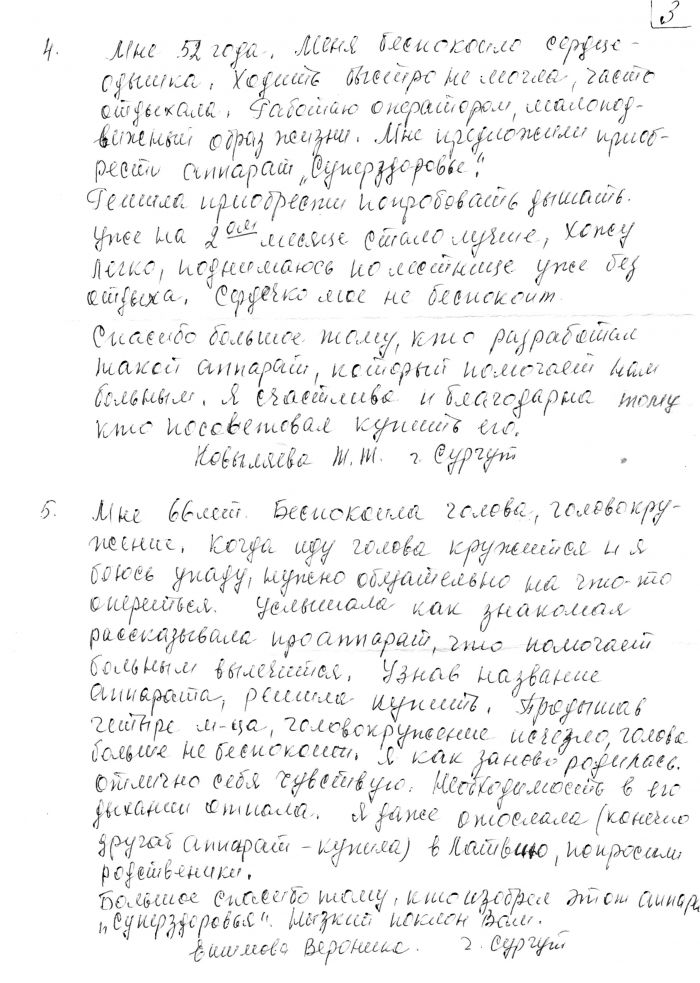 3
4. Мне 52 года. Меня беспокоило сердце -
одышка. Ходить быстро не могла, часто
отдыхала. Работаю оператором, малопод-
вижный образ жизни. Мне предложили приоб-
рести аппарат „Суперздоровье".
Решила приобрести попробовать дышать.
Уже на 2ом месяце стало лучше, хожу
легко, поднимаюсь по лестнице уже без
отдыха. Сердечко мое не беспокоит.
Спасибо большое тому, кто разработал
такой аппарат, который помогает нам
больным. Я счастлива и благодарна тому
кто посоветовал купить его.
Ковыляева Т.Т. г. Сургут
5. Мне 66 лет. Беспокоила голова, головокру-
жение. Когда иду голова кружится и я
боюсь упаду, нужно обязательно на что-то
опереться. Услышала как знакомая
рассказывала про аппарат, что помогает
больным вылечится. Узнав название
аппарата, решила купить. Продышав
четыре м-ца, головокружение исчезло, голова
больше не беспокоит. Я как заново родилась.
Отлично себя чувствую. Необходимость в его
дыхании отпала. Я даже отослала (конечно
другой аппарат - купила) в Латвию, попросили
родственики.
Большое спасибо тому, кто изобрел этот аппара
„Суперздоровья". Низкий поклон Вам.
Вероника. г. Сургут